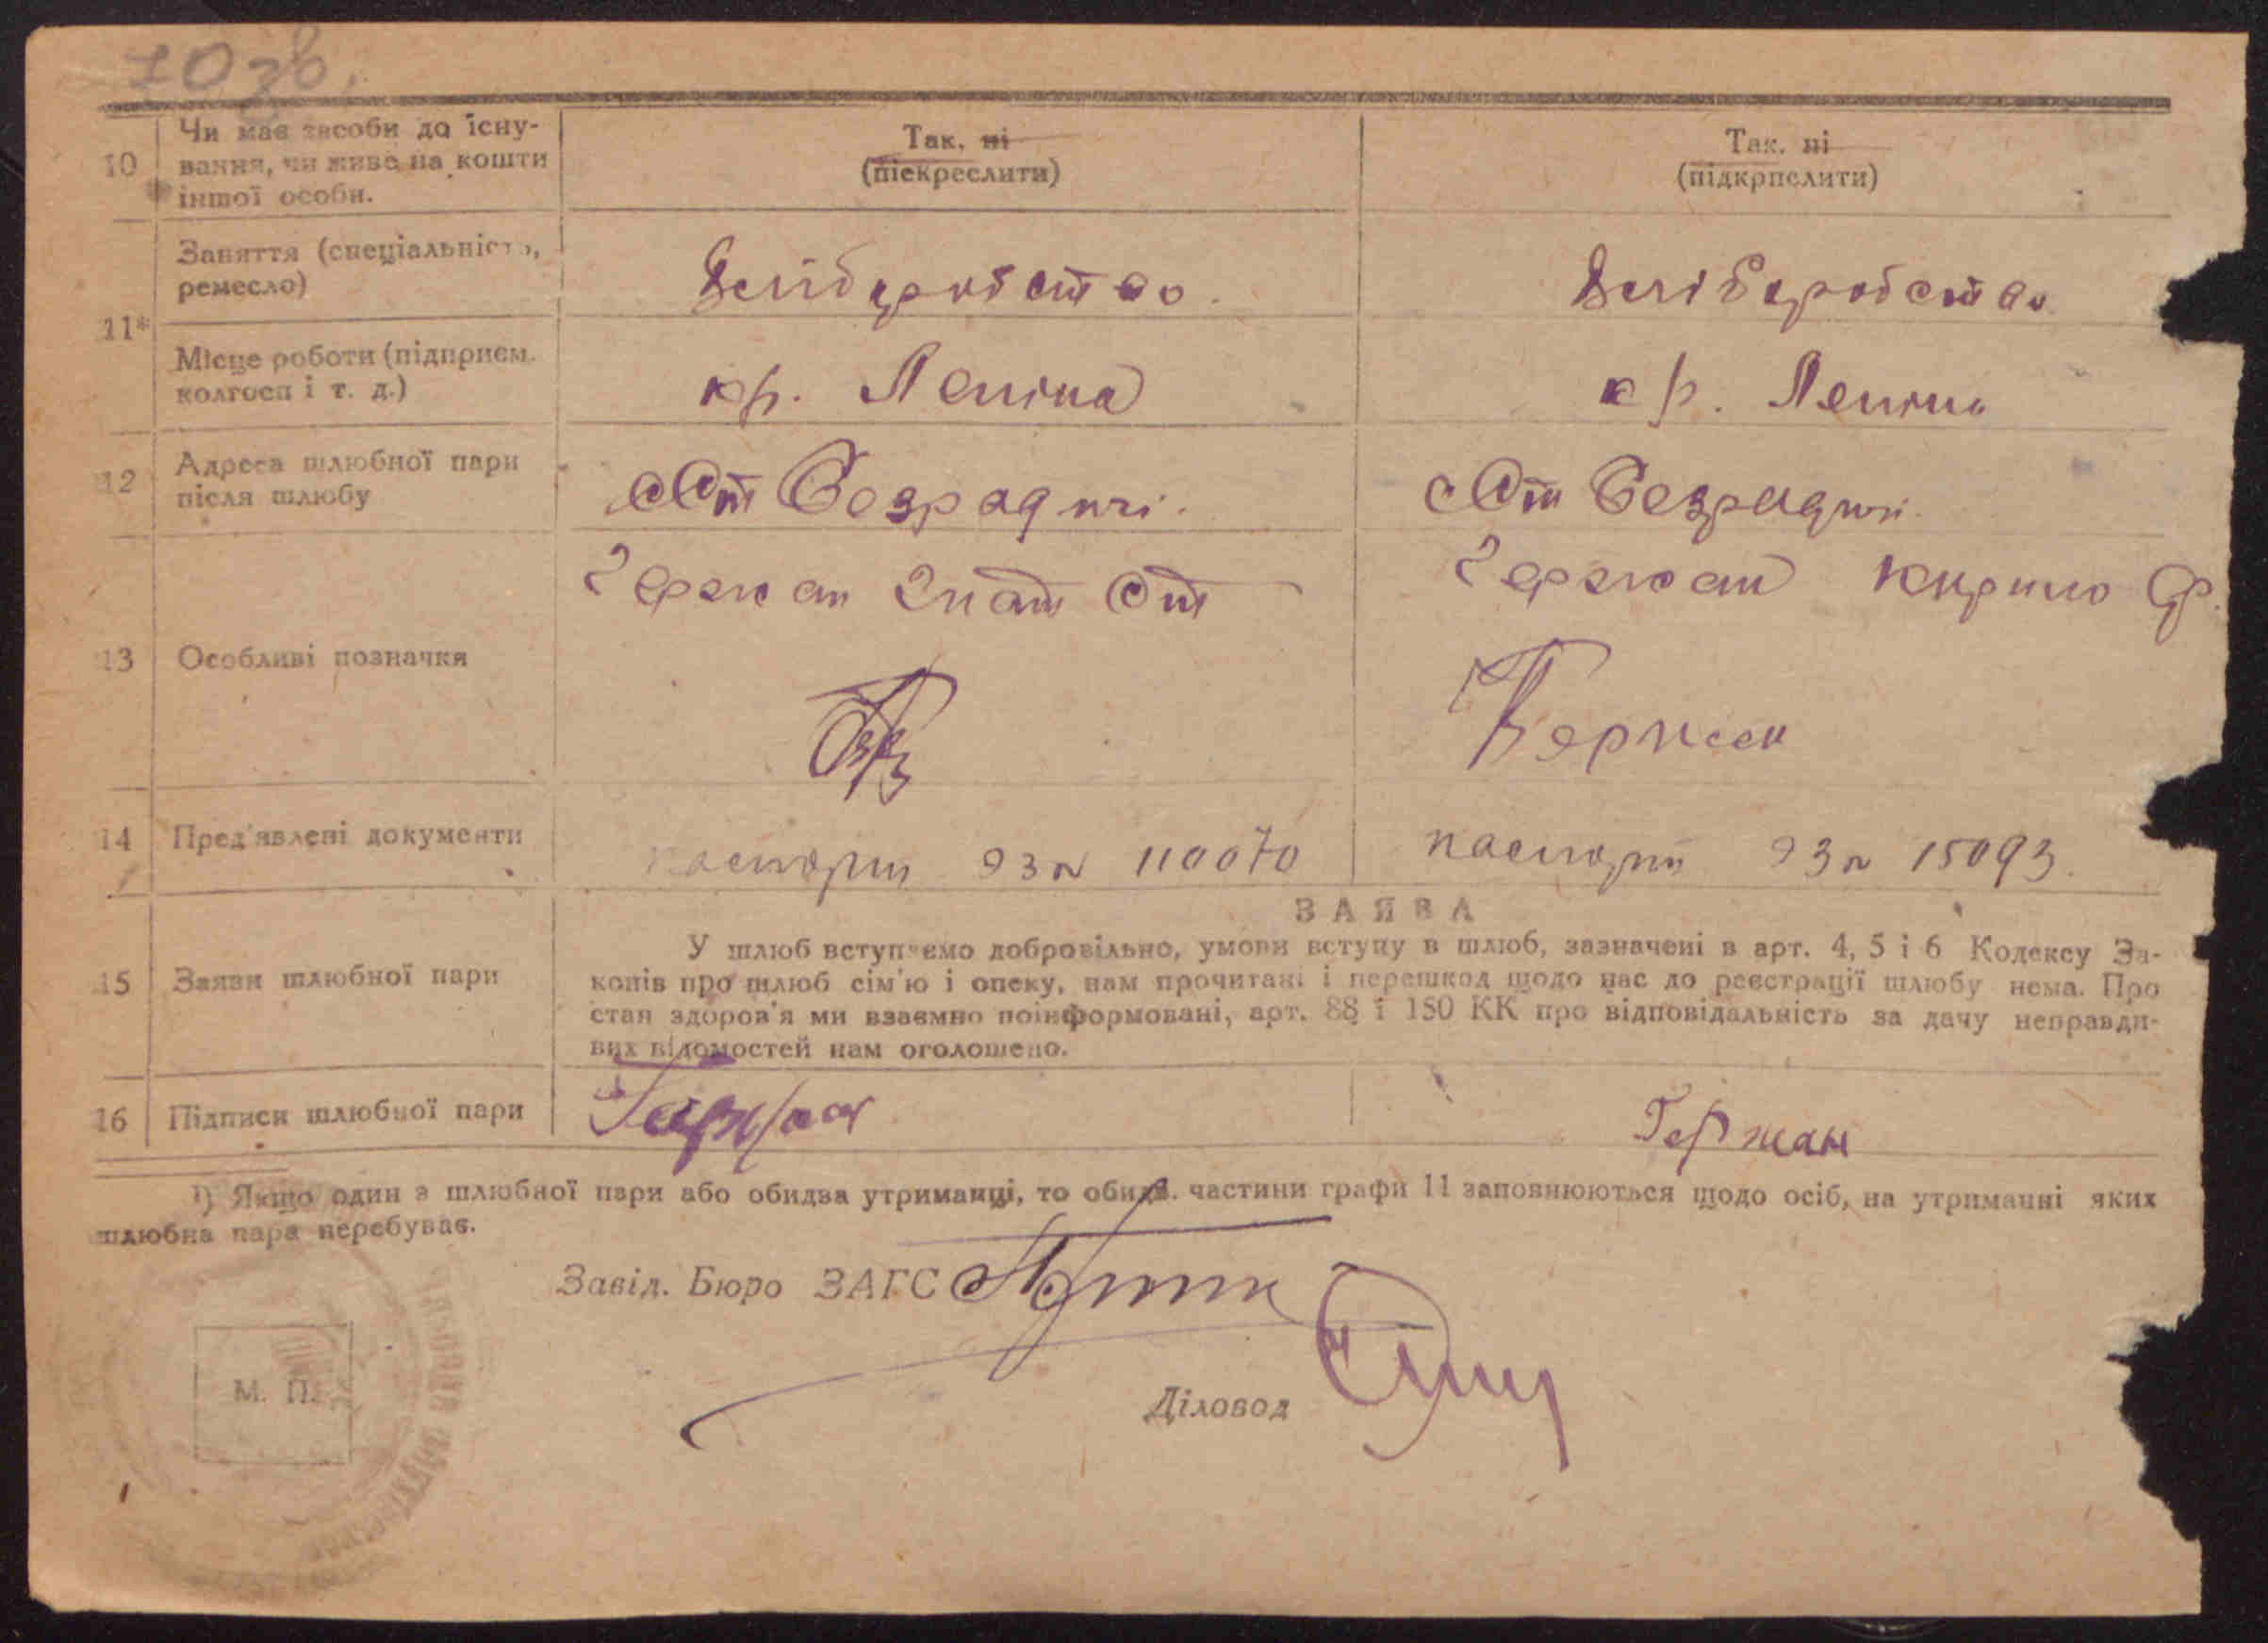 10 Чи має засоби до існу-
вання, чи живе на кошти
іншої особи.
Так, ні
(піекреслити)
Так. ні
(підкрпслити)
11*
Заняття (спеціальність,
ремесло)
Хліборобство.
Хліборобство
Місце роботи (підприєм.
колгосп і т. д.)
кр. Леніна
кр. Леніна
12 Адреса шлюбної пари
після шлюбу
с Ст Безрадичі.
с Ст Безрадичі.
13 Особливі позначки
Гержан Гнат Ст
Гержан Кирило Ф.
Гержан
14 Пред'явлені документи
паспорт 93 № 110070
паспорт 93 № 15093.
ЗАЯВА
15 Заяви шлюбної пари
У шлюб вступаємо добровільно, умови вступу в шлюб, зазначені в арт. 4, 5 і 6 Кодексу За-
конів про шлюб сім'ю і опеку, нам прочитані і перешкод щодо нас до реєстрації шлюбу нема. Про
стан здоров'я ми взаємно поінформовані, арт. 88 і 150 КК про відповідальність за дачу неправди-
вих відомостей нам оголошено.
16 Підписи шлюбної пари
Гержан
Гержан
1) Якщо один з шлюбної пари або обидва утриманці, то обидв. частини графи 11 заповнюються щодо осіб, на утриманні яких
шлюбна пара перебуває.
Завід. Бюро ЗАГС
М. П.
Діловод